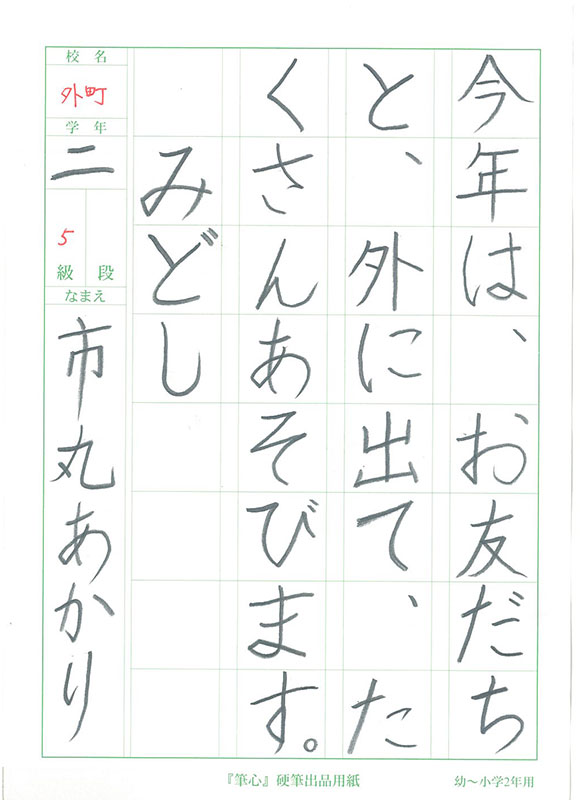 今年は、お友だち
と、外に出て、た
くさんあそびます。
みどし
校名
外町
学年
二
5
級段
なまえ
市丸あかり
『筆心』硬筆出品用紙
幼〜小学2年用